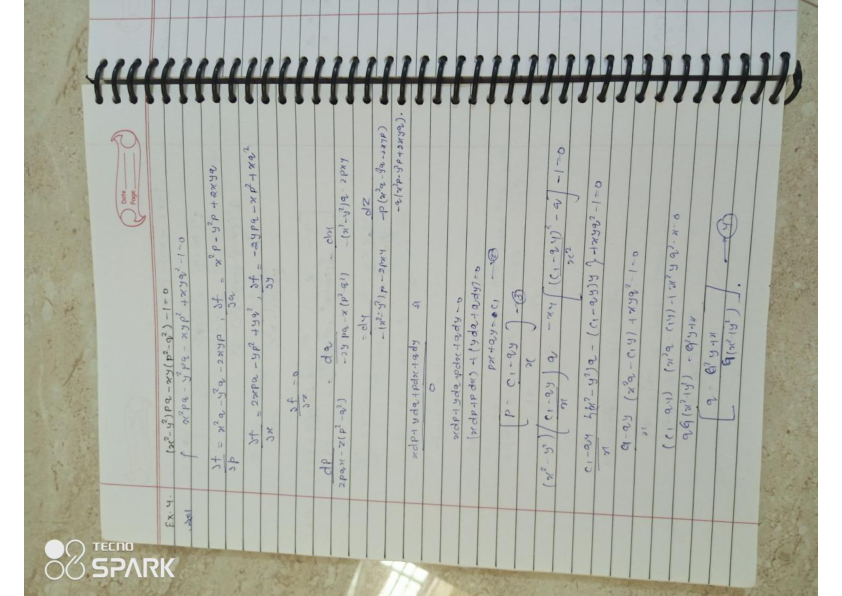 Date
Page
Ex. 4. (x²-y²)pq-xy(p²-q²)-1=0
sol f x²pq-y²pq-xyp²+xyq²-1=0
∂f/∂p = x²q-y²q-2xyp, ∂f/∂q = x²p-y²p+2xyq
∂f/∂x = 2xpq-yp²+yq², ∂f/∂y = -2ypq-xp²+xq²
∂f/∂z = 0
dp/2pqx-y(p²-q²) = dq/-2ypq-x(p²-q²) = dx/-(x²-y²)q-2pxy
= dy/-(x²-y²)p-2pxy = dz/-p(x²q-y²q-2xyp)-q(x²p-y²p+2xyq).
xdp+ydq+pdx+qdy/0
xdp+ydq+pdx+qdy=0
(xdp+pdx)+(ydq+qdy)=0
px+qy=c₁ —②
[p = c₁-qy/x] —③
(x²-y²)(c₁-qy/x)q -xy[(c₁-qy)²/x² - q²]-1=0
c₁-qy/x {(x²-y²)q-(c₁-qy)y}+xyq²-1=0
qy (x²q-c₁y)+xyq²-1=0
(c₁ qy) (x²q c₁y)+x²yq²-x=0
qc₁(x²+y²) = c₁²y+x
[q = c₁²y+x/c₁(x²+y²)]. —④
TECNO
SPARK